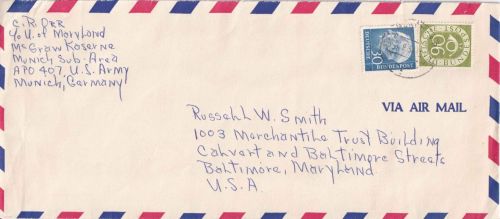 C. R. Orr
℅ U. of Maryland
McGraw Kaserne
Munich Sub-Area
APO 407, U.S. Army
Munich, Germany
30
DEUTSCHE BUNDESPOST
VIA AIR MAIL
Russell W. Smith
1003 Merchantile Trust Building
Calvert and Baltimore Streets
Baltimore, Maryland
U.S.A.